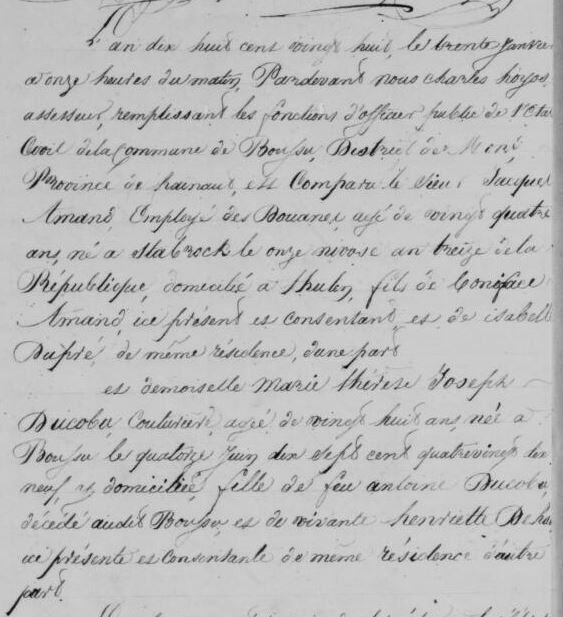 L'an dix huit cent vingt huit, le trente Janvier
a onze heures du matin, Pardevant nous charles
assesseur, remplissant les fonctions d'officier public de l'Etat
Civil de la Commune de Boussu, District de Mons,
Province de hainaut, est Comparu le Sieur Jacques
Amand, Employé des Douanes agé de vingt quatre
ans, né a Stabrock le onze nivose an treize de la
République, domicilié a thulin, fils de Boniface
Amand, ice présent et consentant et de isabelle
Dupré, de même résidence, d'une part
et demoiselle Marie thérèse Joseph
Ducobu, Couturière, agée de vingt huit ans, née a
Boussu le quatorze Juin dix Sept cent quatrevingt dix
neuf, y domiciliée, fille de feu antoine Ducobu,
décédé audit Boussu, et de vivante henriette
ice présente et consentante de même résidence d'autre
part.